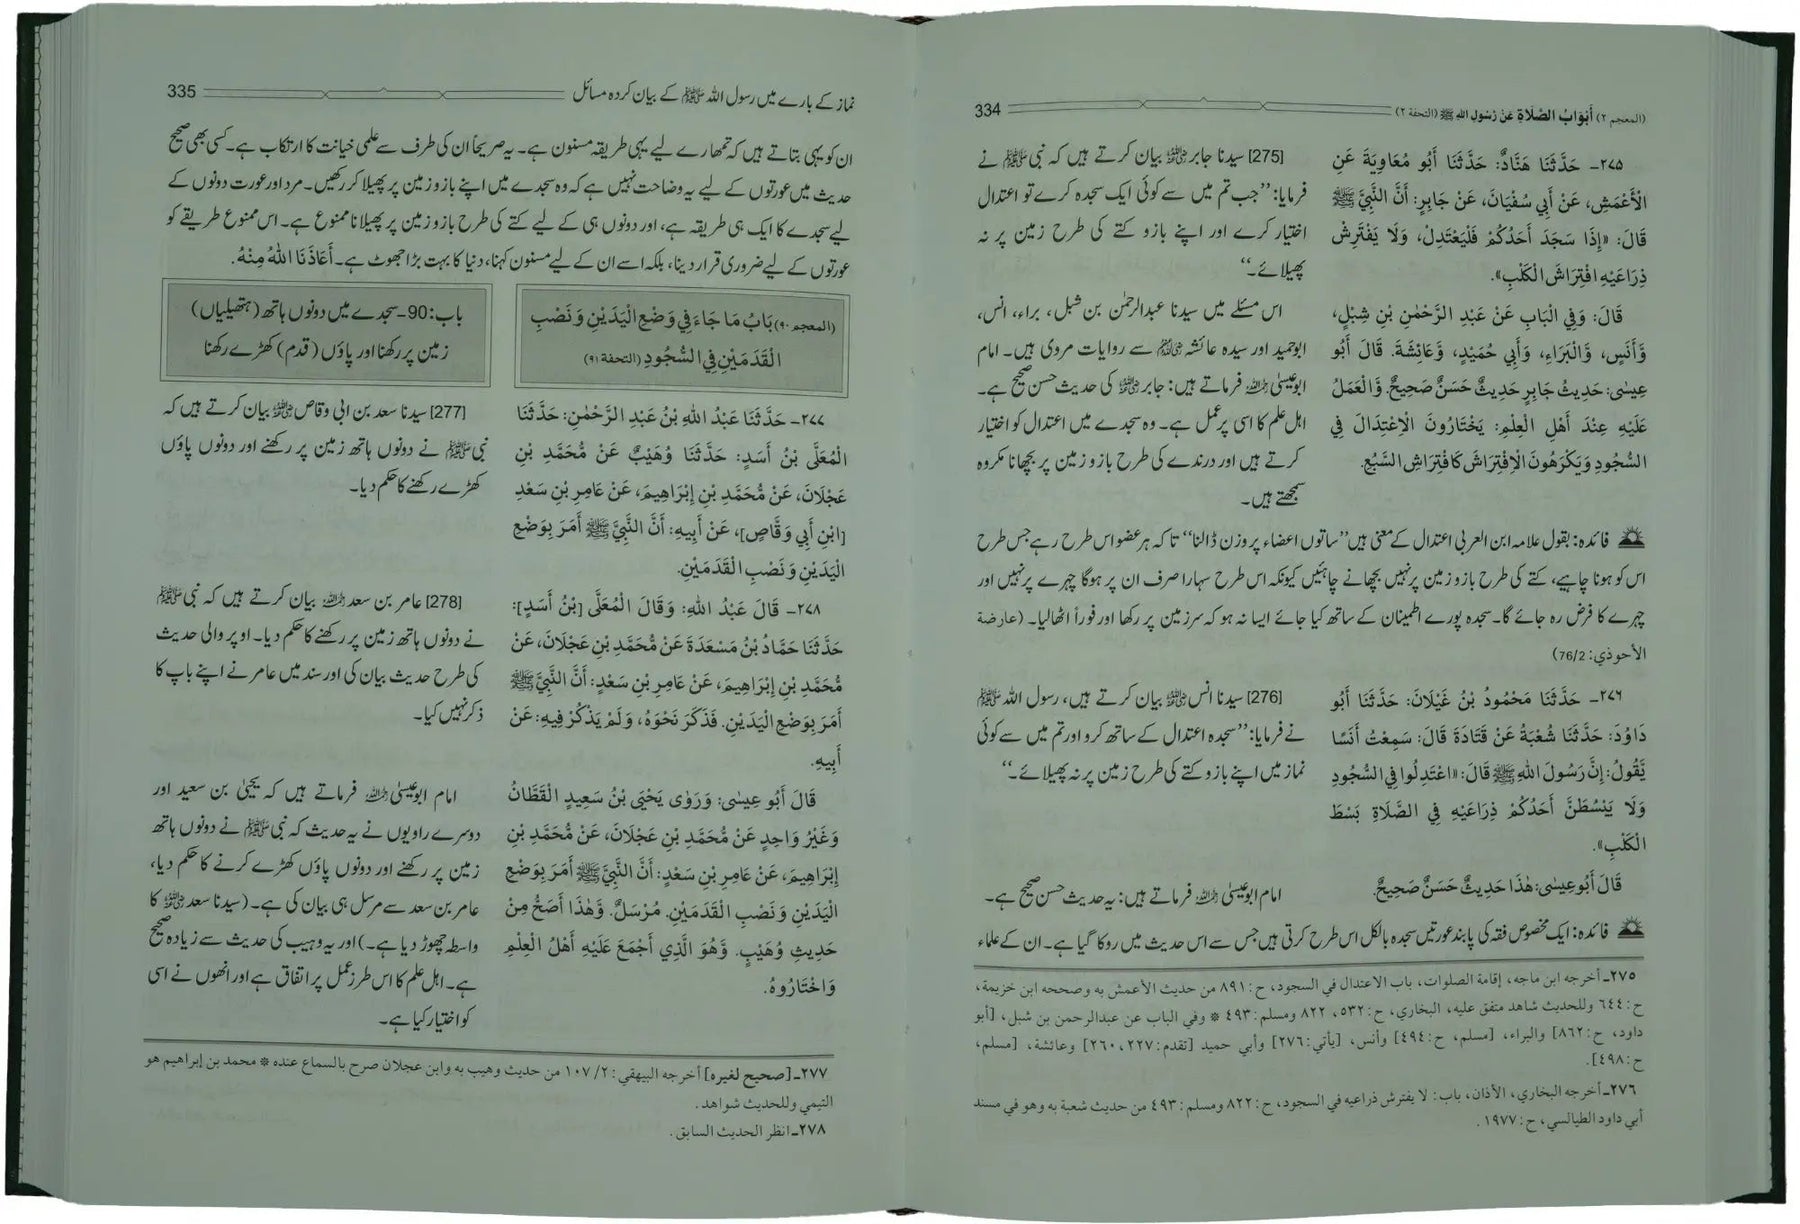 (المعجم ٢) أَبْوَابُ الصَّلَاةِ عَنْ رَسُولِ اللهِ ﷺ (التحفة ٢) 334
٢٧٥- حَدَّثَنَا هَنَّادٌ: حَدَّثَنَا أَبُو مُعَاوِيَةَ عَنِ
الْأَعْمَشِ، عَنْ أَبِي سُفْيَانَ، عَنْ جَابِرٍ: أَنَّ النَّبِيَّ ﷺ
قَالَ: «إِذَا سَجَدَ أَحَدُكُمْ فَلْيَعْتَدِلْ، وَلَا يَفْتَرِشْ
ذِرَاعَيْهِ افْتِرَاشَ الْكَلْبِ».
قَالَ: وَفِي الْبَابِ عَنْ عَبْدِ الرَّحْمٰنِ بْنِ شِبْلٍ،
وَّأَنَسٍ، وَّالْبَرَاءِ، وَأَبِي حُمَيْدٍ، وَّعَائِشَةَ. قَالَ أَبُو
عِيسٰى: حَدِيثُ جَابِرٍ حَدِيثٌ حَسَنٌ صَحِيحٌ. وَّالْعَمَلُ
عَلَيْهِ عِنْدَ أَهْلِ الْعِلْمِ: يَخْتَارُونَ الْاِعْتِدَالَ فِي
السُّجُودِ وَيَكْرَهُونَ الْاِفْتِرَاشَ كَافْتِرَاشِ السَّبُعِ.
[275] سیدنا جابر ﷜ بیان کرتے ہیں کہ نبی ﷺ نے
فرمایا: ’’جب تم میں سے کوئی ایک سجدہ کرے تو اعتدال
اختیار کرے اور اپنے بازو کتے کی طرح زمین پر نہ
پھیلائے۔‘‘
اس مسئلے میں سیدنا عبدالرحمٰن بن شبل، براء، انس،
ابوحمید اور سیدہ عائشہ ﷢ سے روایات مروی ہیں۔ امام
ابوعیسیٰ ﷫ فرماتے ہیں: جابر ﷜ کی حدیث حسن صحیح ہے۔
اہل علم کا اسی پر عمل ہے۔ وہ سجدے میں اعتدال کو اختیار
کرتے ہیں اور درندے کی طرح بازو زمین پر بچھانا مکروہ
سمجھتے ہیں۔
فائدہ: بقول علامہ ابن العربی اعتدال کے معنی ہیں ’’ساتوں اعضاء پر وزن ڈالنا‘‘ تا کہ ہر عضو اس طرح رہے جس طرح
اس کو ہونا چاہیے، کتے کی طرح بازو زمین پر نہیں بچھانے چاہئیں کیونکہ اس طرح سہارا صرف ان پر ہوگا چہرے پر نہیں اور
چہرے کا فرض رہ جائے گا۔ سجدہ پورے اطمینان کے ساتھ کیا جائے ایسا نہ ہو کہ سر زمین پر رکھا اور فوراً اٹھا لیا۔ (عارضة
الأحوذي: 76/2)
٢٧٦- حَدَّثَنَا مَحْمُودُ بْنُ غَيْلَانَ: حَدَّثَنَا أَبُو
دَاوُدَ: حَدَّثَنَا شُعْبَةُ عَنْ قَتَادَةَ قَالَ: سَمِعْتُ أَنَسًا
يَّقُولُ: إِنَّ رَسُولَ اللهِ ﷺ قَالَ: «اعْتَدِلُوا فِي السُّجُودِ
وَلَا يَبْسُطَنَّ أَحَدُكُمْ ذِرَاعَيْهِ فِي الصَّلَاةِ بَسْطَ
الْكَلْبِ».
قَالَ أَبُو عِيسٰى: هٰذَا حَدِيثٌ حَسَنٌ صَحِيحٌ.
[276] سیدنا انس ﷜ بیان کرتے ہیں، رسول اللہ ﷺ
نے فرمایا: ’’سجدہ اعتدال کے ساتھ کرو اور تم میں سے کوئی
نماز میں اپنے بازو کتے کی طرح زمین پر نہ پھیلائے۔‘‘
امام ابوعیسیٰ ﷫ فرماتے ہیں: یہ حدیث حسن صحیح ہے۔
فائدہ: ایک مخصوص فقہ کی پابند عورتیں سجدہ بالکل اس طرح کرتی ہیں جس سے اس حدیث میں روکا گیا ہے۔ ان کے علماء
٢٧٥ـ أخرجه ابن ماجه، إقامة الصلوات، باب الاعتدال في السجود، ح:٨٩١ من حديث الأعمش به وصححه ابن خزيمة،
ح:٦٤٤ وللحديث شاهد متفق عليه، البخاري، ح:٥٣٢، ٨٢٢ ومسلم:٤٩٣ * وفي الباب عن عبدالرحمن بن شبل، [أبو
داود، ح:٨٦٢] والبراء، [مسلم، ح:٤٩٤] وأنس، [يأتي:٢٧٦] وأبي حميد [تقدم:٢٢٧، ٢٦٠] وعائشة، [مسلم،
ح:٤٩٨].
٢٧٦ـ أخرجه البخاري، الأذان، باب: لا يفترش ذراعيه في السجود، ح:٨٢٢ ومسلم:٤٩٣ من حديث شعبة به وهو في مسند
أبي داود الطيالسي، ح:١٩٧٧.
نماز کے بارے میں رسول اللہ ﷺ کے بیان کردہ مسائل 335
ان کو یہی بتاتے ہیں کہ تمھارے لیے یہی طریقہ مسنون ہے۔ یہ صریحاً ان کی طرف سے علمی خیانت کا ارتکاب ہے۔ کسی بھی صحیح
حدیث میں عورتوں کے لیے یہ وضاحت نہیں ہے کہ وہ سجدے میں اپنے بازو زمین پر پھیلا کر رکھیں۔ مرد اور عورت دونوں کے
لیے سجدے کا ایک ہی طریقہ ہے، اور دونوں ہی کے لیے کتے کی طرح بازو زمین پر پھیلانا ممنوع ہے۔ اس ممنوع طریقے کو
عورتوں کے لیے ضروری قرار دینا، بلکہ اسے ان کے لیے مسنون کہنا، دنیا کا بہت بڑا جھوٹ ہے۔ أَعَاذَنَا اللهُ مِنْهُ.
(المعجم ٩٠) بَابُ مَا جَاءَ فِي وَضْعِ الْيَدَيْنِ وَنَصْبِ
الْقَدَمَيْنِ فِي السُّجُودِ (التحفة ٩١)
باب: 90- سجدے میں دونوں ہاتھ (ہتھیلیاں)
زمین پر رکھنا اور پاؤں (قدم) کھڑے رکھنا
٢٧٧- حَدَّثَنَا عَبْدُ اللهِ بْنُ عَبْدِ الرَّحْمٰنِ: حَدَّثَنَا
الْمُعَلَّى بْنُ أَسَدٍ: حَدَّثَنَا وُهَيْبٌ عَنْ مُّحَمَّدِ بْنِ
عَجْلَانَ، عَنْ مُّحَمَّدِ بْنِ إِبْرَاهِيمَ، عَنْ عَامِرِ بْنِ سَعْدِ
[ابْنِ أَبِي وَقَّاصٍ]، عَنْ أَبِيهِ: أَنَّ النَّبِيَّ ﷺ أَمَرَ بِوَضْعِ
الْيَدَيْنِ وَنَصْبِ الْقَدَمَيْنِ.
[277] سیدنا سعد بن ابی وقاص ﷜ بیان کرتے ہیں کہ
نبی ﷺ نے دونوں ہاتھ زمین پر رکھنے اور دونوں پاؤں
کھڑے رکھنے کا حکم دیا۔
٢٧٨- قَالَ عَبْدُ اللهِ: وَقَالَ الْمُعَلَّى [بْنُ أَسَدٍ]:
حَدَّثَنَا حَمَّادُ بْنُ مَسْعَدَةَ عَنْ مُّحَمَّدِ بْنِ عَجْلَانَ، عَنْ
مُّحَمَّدِ بْنِ إِبْرَاهِيمَ، عَنْ عَامِرِ بْنِ سَعْدٍ: أَنَّ النَّبِيَّ ﷺ
أَمَرَ بِوَضْعِ الْيَدَيْنِ. فَذَكَرَ نَحْوَهُ، وَلَمْ يَذْكُرْ فِيهِ: عَنْ
أَبِيهِ.
[278] عامر بن سعد ﷫ بیان کرتے ہیں کہ نبی ﷺ
نے دونوں ہاتھ زمین پر رکھنے کا حکم دیا۔ اوپر والی حدیث
کی طرح حدیث بیان کی اور سند میں عامر نے اپنے باپ کا
ذکر نہیں کیا۔
قَالَ أَبُو عِيسٰى: وَرَوٰى يَحْيَى بْنُ سَعِيدٍ الْقَطَّانُ
وَغَيْرُ وَاحِدٍ عَنْ مُّحَمَّدِ بْنِ عَجْلَانَ، عَنْ مُّحَمَّدِ بْنِ
إِبْرَاهِيمَ، عَنْ عَامِرِ بْنِ سَعْدٍ: أَنَّ النَّبِيَّ ﷺ أَمَرَ بِوَضْعِ
الْيَدَيْنِ وَنَصْبِ الْقَدَمَيْنِ. مُرْسَلٌ. وَّهٰذَا أَصَحُّ مِنْ
حَدِيثِ وُهَيْبٍ. وَّهُوَ الَّذِي أَجْمَعَ عَلَيْهِ أَهْلُ الْعِلْمِ
وَاخْتَارُوهُ.
امام ابوعیسیٰ ﷫ فرماتے ہیں کہ یحییٰ بن سعید اور
دوسرے راویوں نے یہ حدیث کہ نبی ﷺ نے دونوں ہاتھ
زمین پر رکھنے اور دونوں پاؤں کھڑے کرنے کا حکم دیا،
عامر بن سعد سے مرسل ہی بیان کی ہے۔ (سیدنا سعد ﷜ کا
واسطہ چھوڑ دیا ہے۔) اور یہ وہیب کی حدیث سے زیادہ صحیح
ہے۔ اہل علم کا اس طرز عمل پر اتفاق ہے اور انھوں نے اسی
کو اختیار کیا ہے۔
٢٧٧ـ [صحيح لغيره] أخرجه البيهقي:٢/ ١٠٧ من حديث وهيب به وابن عجلان صرح بالسماع عنده * محمد بن إبراهيم هو
التيمي وللحديث شواهد.
٢٧٨ـ انظر الحديث السابق.